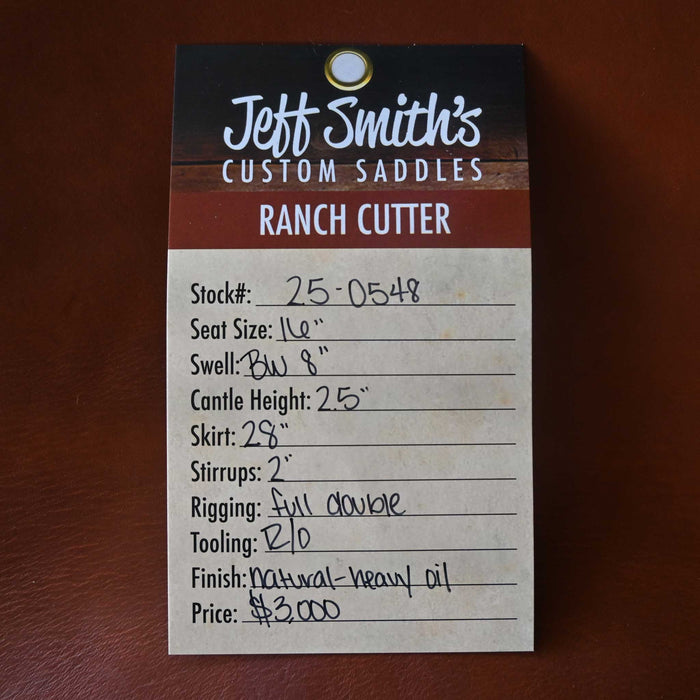 Jeff Smith's
CUSTOM SADDLES
RANCH CUTTER
Stock#: 25-0548
Seat Size: 16"
Swell: BW 8"
Cantle Height: 2.5"
Skirt: 28"
Stirrups: 2"
Rigging: full double
Tooling: R/O
Finish: natural-heavy oil
Price: $3,000